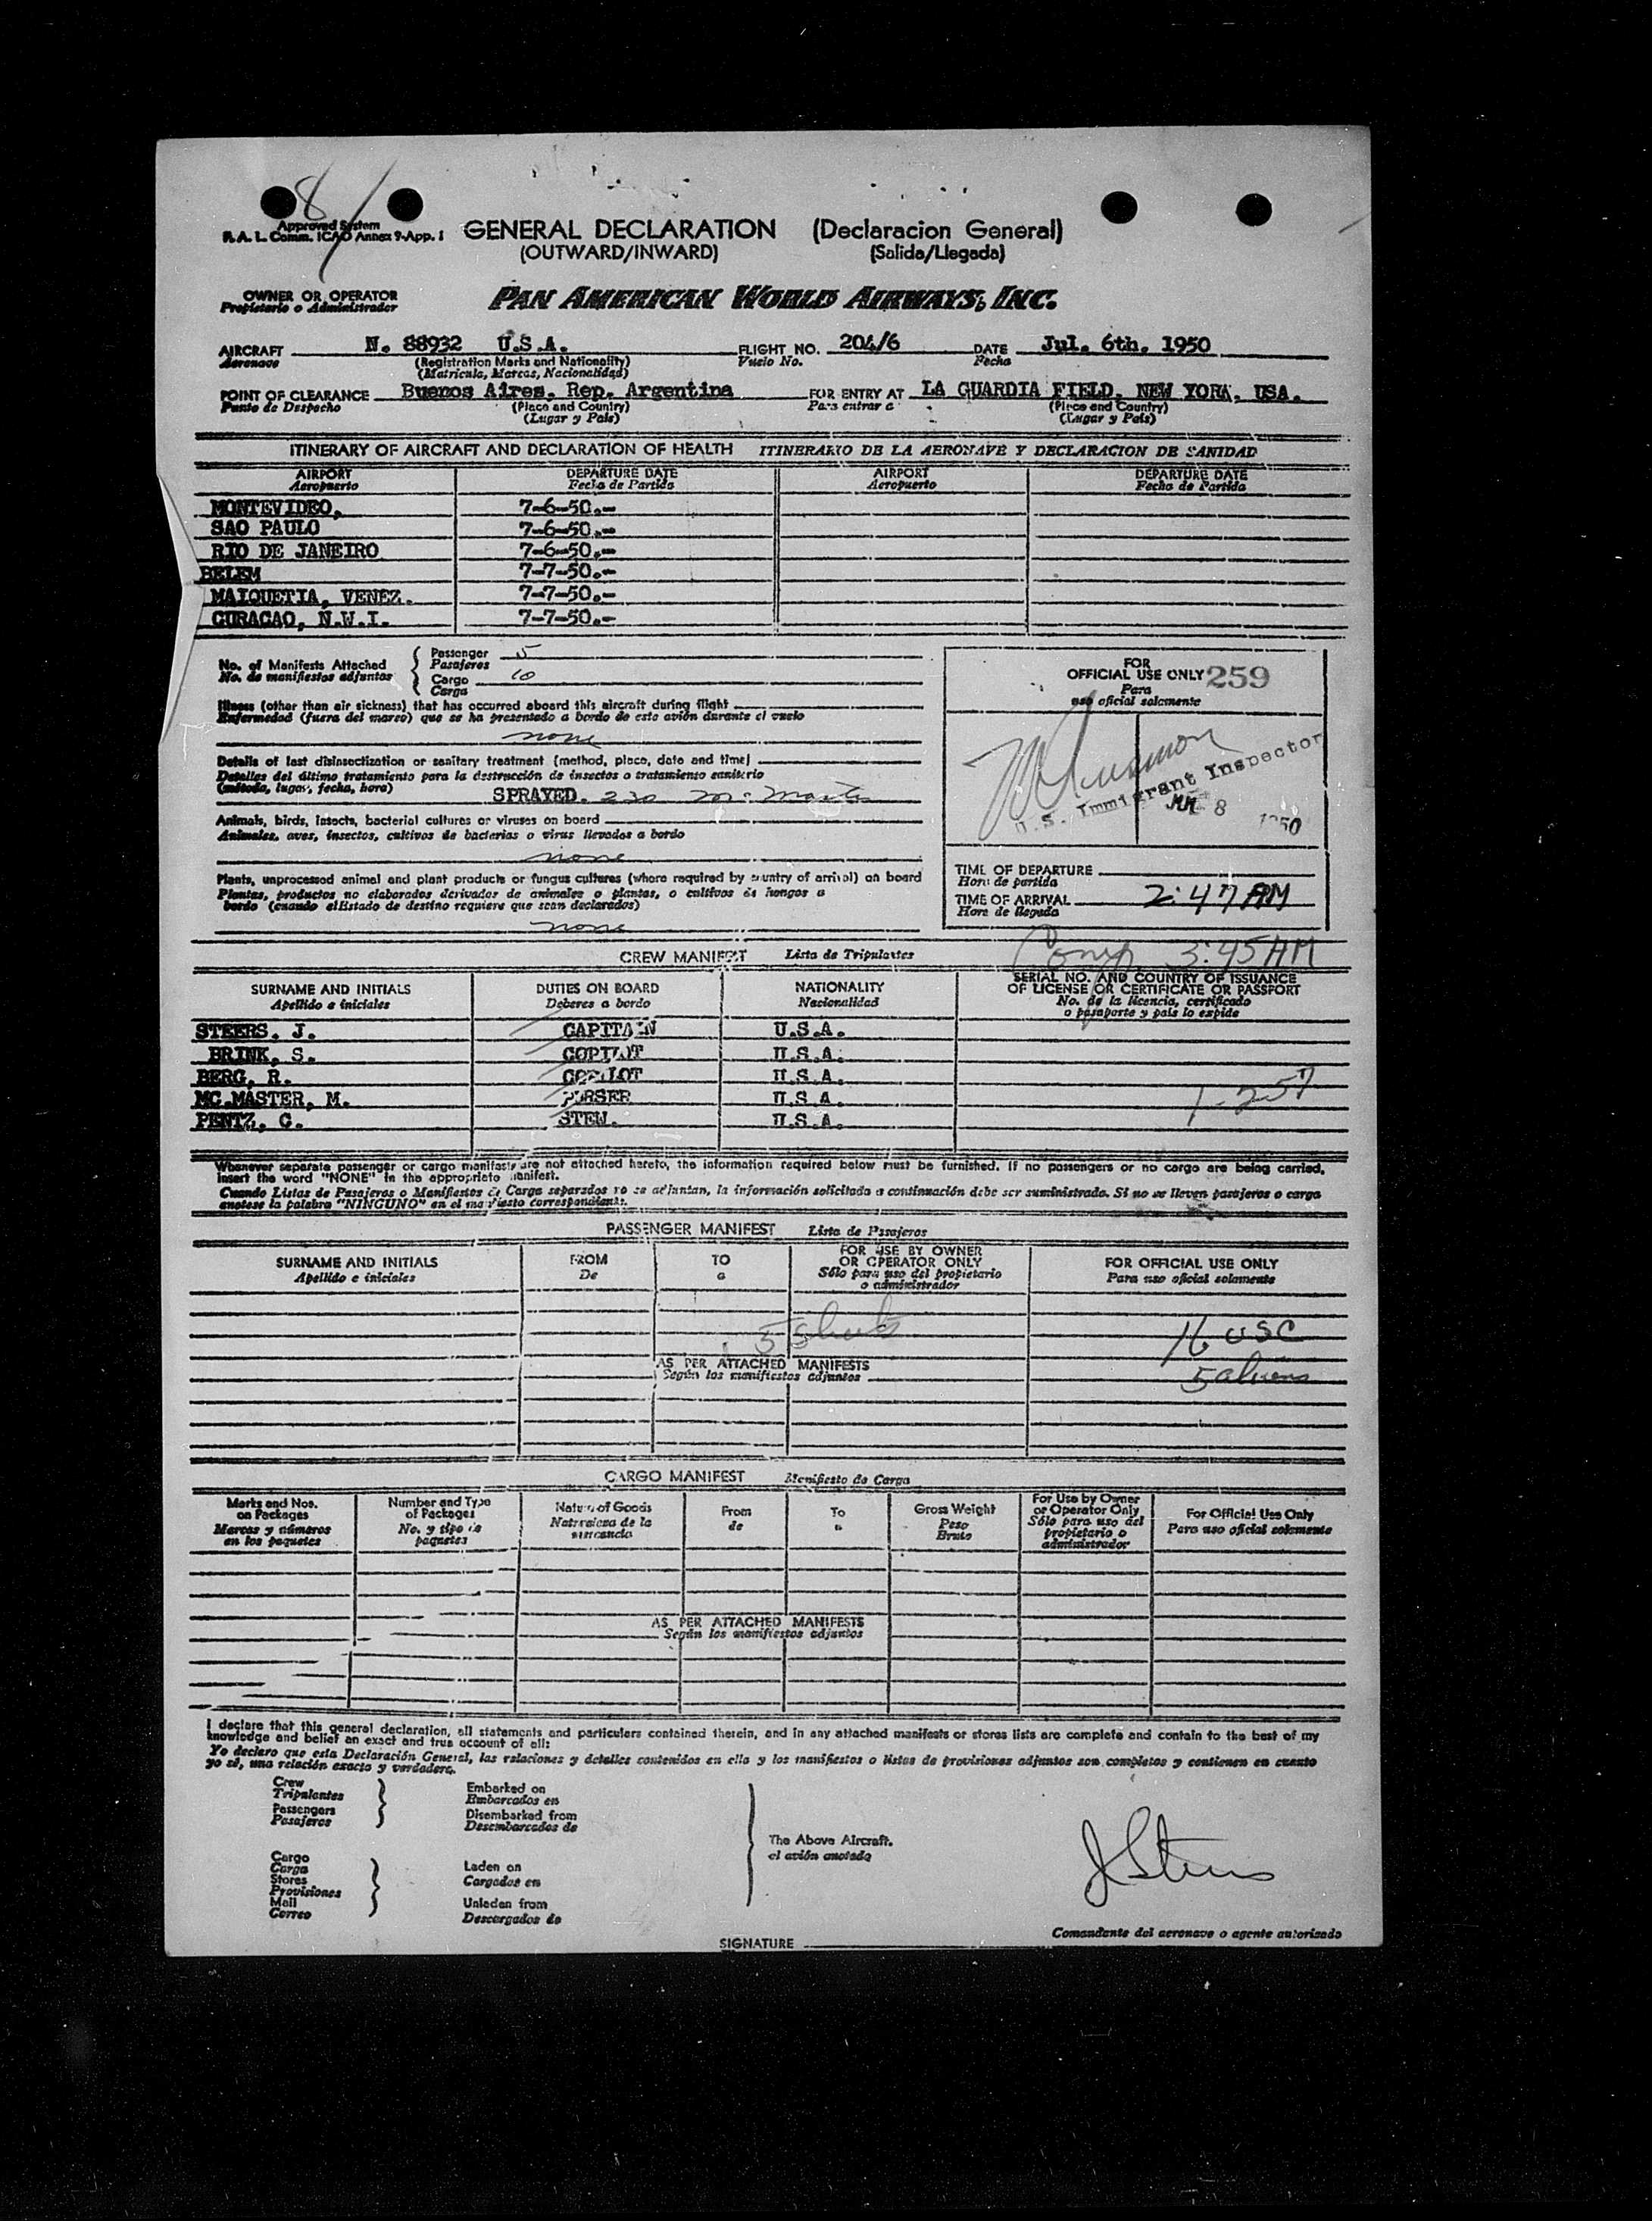 8
Approved System
R. A. L. Comm. ICAO Annex 9-App. 1
GENERAL DECLARATION (Declaracion General)
(OUTWARD/INWARD) (Salida/Llegada)
OWNER OR OPERATOR
Propietario o Administrador
PAN AMERICAN WORLD AIRWAYS, INC.
AIRCRAFT N. 88932 U.S.A. FLIGHT NO. 204/6 DATE Jul. 6th. 1950
Aeronave (Registration Marks and Nationality) Vuelo No. Fecha
(Matricula, Marcas, Nacionalidad)
POINT OF CLEARANCE Buenos Aires, Rep. Argentina FOR ENTRY AT LA GUARDIA FIELD, NEW YORK, USA.
Punto de Despacho (Place and Country) Para entrar a (Place and Country)
(Lugar y Pais) (Lugar y Pais)
ITINERARY OF AIRCRAFT AND DECLARATION OF HEALTH ITINERARIO DE LA AERONAVE Y DECLARACION DE SANIDAD
AIRPORT DEPARTURE DATE AIRPORT DEPARTURE DATE
Aeropuerto Fecha de Partida Aeropuerto Fecha de Partida
MONTEVIDEO, 7-6-50.-
SAO PAULO 7-6-50.-
RIO DE JANEIRO 7-6-50.-
BELEM 7-7-50.-
MAIQUETIA, VENEZ. 7-7-50.-
CURACAO, N.W.I. 7-7-50.-
No. of Manifests Attached Passenger 5
No. de manifiestos adjuntos Pasajeros
Cargo 10
Carga
Illness (other than air sickness) that has occurred aboard this aircraft during flight
Enfermedad (fuera del mareo) que se ha presentado a bordo de este avión durante el vuelo
none
Details of last disinsectization or sanitary treatment (method, place, date and time)
Detalles del último tratamiento para la destrucción de insectos o tratamiento sanitario
(método, lugar, fecha, hora) SPRAYED. 230 McMaster
Animals, birds, insects, bacterial cultures or viruses on board
Animales, aves, insectos, cultivos de bacterias o virus llevados a bordo
none
Plants, unprocessed animal and plant products or fungus cultures (where required by country of arrival) on board
Plantas, productos no elaborados derivados de animales o plantas, o cultivos de hongos a
bordo (cuando el Estado de destino requiere que sean declarados)
none
FOR
OFFICIAL USE ONLY 259
Para
uso oficial solamente
U.S. Immigrant Inspector
JUL 8 1950
TIME OF DEPARTURE
Hora de partida
TIME OF ARRIVAL 2:47 AM
Hora de llegada
Comp 3:45 AM
CREW MANIFEST Lista de Tripulantes
SURNAME AND INITIALS DUTIES ON BOARD NATIONALITY SERIAL NO. AND COUNTRY OF ISSUANCE
OF LICENSE OR CERTIFICATE OR PASSPORT
Apellido e iniciales Deberes a bordo Nacionalidad No. de la licencia, certificado
o pasaporte y pais lo expide
STEERS, J. CAPITAIN U.S.A.
BRINK, S. COPILOT U.S.A.
BERG, R. COPILOT U.S.A.
MC.MASTER, M. PURSER U.S.A.
PENTZ, G. STEW. U.S.A.
1-257
Whenever separate passenger or cargo manifests are not attached hereto, the information required below must be furnished. If no passengers or no cargo are being carried,
insert the word "NONE" in the appropriate manifest.
Cuando Listas de Pasajeros o Manifiestos de Carga separados no se adjuntan, la información solicitada a continuación debe ser suministrada. Si no se lleven pasajeros o carga
anotese la palabra "NINGUNO" en el manifiesto correspondiente.
PASSENGER MANIFEST Lista de Pasajeros
SURNAME AND INITIALS FROM TO FOR USE BY OWNER
OR OPERATOR ONLY FOR OFFICIAL USE ONLY
Apellido e iniciales De a Sólo para uso del propietario
o administrador Para uso oficial solamente
5 Sheets 16 USC
AS PER ATTACHED MANIFESTS 5 aliens
Según los manifiestos adjuntos
CARGO MANIFEST Manifiesto de Carga
Marks and Nos.
on Packages
Marcas y números
en los paquetes
Number and Type
of Packages
No. y tipo de
paquetes
Nature of Goods
Naturaleza de la
mercancia
From
de
To
a
Gross Weight
Peso
Bruto
For Use by Owner
or Operator Only
Sólo para uso del
propietario o
administrador
For Official Use Only
Para uso oficial solamente
AS PER ATTACHED MANIFESTS
Según los manifiestos adjuntos
I declare that this general declaration, all statements and particulars contained therein, and in any attached manifests or stores lists are complete and contain to the best of my
knowledge and belief an exact and true account of all:
Yo declaro que esta Declaración General, las relaciones y detalles contenidos en ella y los manifiestos o listas de provisiones adjuntos son completos y contienen en cuanto
yo sé, una relación exacta y verdadera.
Crew
Tripulantes
Passengers
Pasajeros
Embarked on
Embarcados en
Disembarked from
Desembarcados de
The Above Aircraft.
el avión anotado
Cargo
Carga
Stores
Provisiones
Mail
Correo
Laden on
Cargados en
Unladen from
Descargados de
J Steers
SIGNATURE
Comandante del aeronave o agente autorizado